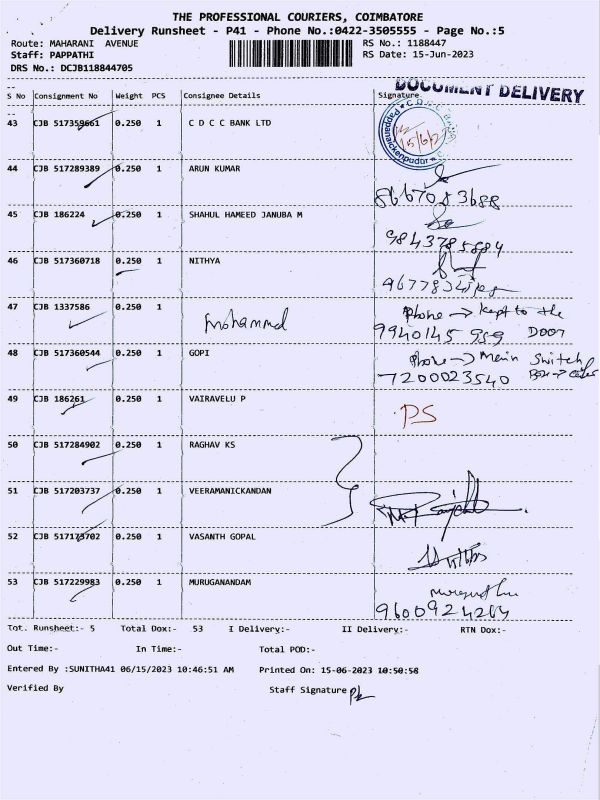 THE PROFESSIONAL COURIERS, COIMBATORE
Delivery Runsheet - P41 - Phone No.:0422-3505555 - Page No.:5
Route: MAHARANI AVENUE RS No.: 1188447
Staff: PAPPATHI RS Date: 15-Jun-2023
DRS No.: DCJB118844705
DOCUMENT DELIVERY
S No Consignment No Weight PCS Consignee Details Signature
43 CJB 517359661 0.250 1 C D C C BANK LTD
Pappanaickenpudur
44 CJB 517289389 0.250 1 ARUN KUMAR
8667083688
45 CJB 186224 0.250 1 SHAHUL HAMEED JANUBA M
9843785884
46 CJB 517360718 0.250 1 NITHYA
47 CJB 1337586 0.250 1 Phone → kept to the
Mohammed 9940145 959 Door
48 CJB 517360544 0.250 1 GOPI Phone → Main Switch
7200023540 Box →
49 CJB 186261 0.250 1 VAIRAVELU P PS
50 CJB 517284902 0.250 1 RAGHAV KS
51 CJB 517203737 0.250 1 VEERAMANICKANDAN
52 CJB 517173702 0.250 1 VASANTH GOPAL
53 CJB 517229983 0.250 1 MURUGANANDAM
9600924264
Tot. Runsheet:- 5 Total Dox:- 53 I Delivery:- II Delivery:- RTN Dox:-
Out Time:- In Time:- Total POD:-
Entered By :SUNITHA41 06/15/2023 10:46:51 AM Printed On: 15-06-2023 10:50:58
Verified By Staff Signature